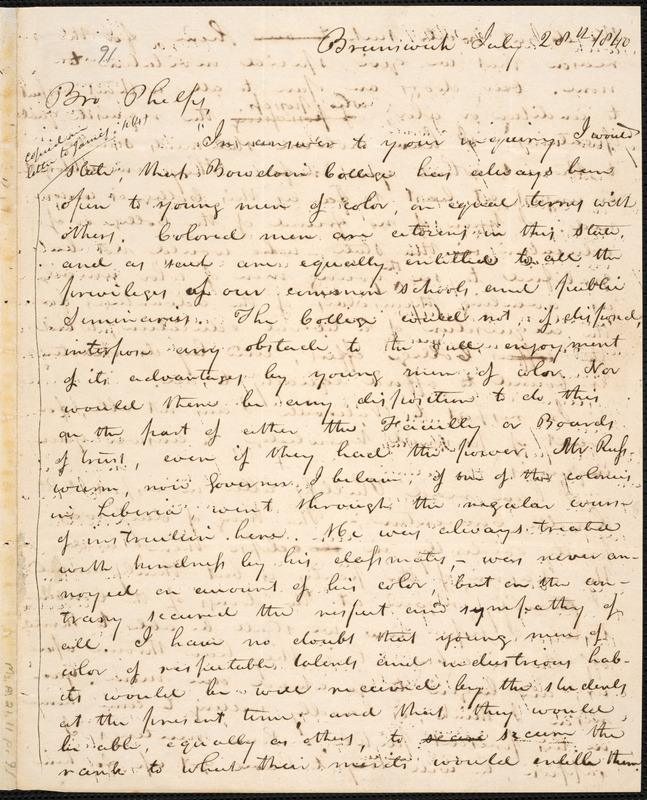 Brunswick July 28th 1840
91
Bro Phelps,
copied in
letter to James,
"In answer to your inquiry, I would
state, that Bowdoin College has always been
open to young men of color, on equal terms with
others. Colored men are citizens in this state,
and as such are equally entitled to all the
privileges of our common schools and public
Seminaries. The College could not, if disposed,
interpose any obstacle to the full enjoyment
of its advantages by young men of color. Nor
would there be any disposition to do this
on the part of either the Faculty or Boards
of trust, even if they had the power. Mr Russ-
wurm, now Governor, I believe, of one of the colonies
in Liberia, went through the regular course
of instruction here. He was always treated
with kindness by his classmates, - was never an-
noyed on amount of his color, but on the con-
trary secured the respect and sympathy of
all. I have no doubt that young men of
color of respectable talents and industrious hab-
its would be well received by the students
at the present time; and that they would
be able, equally as others, to secure the
rank to which their merits would entitle them.